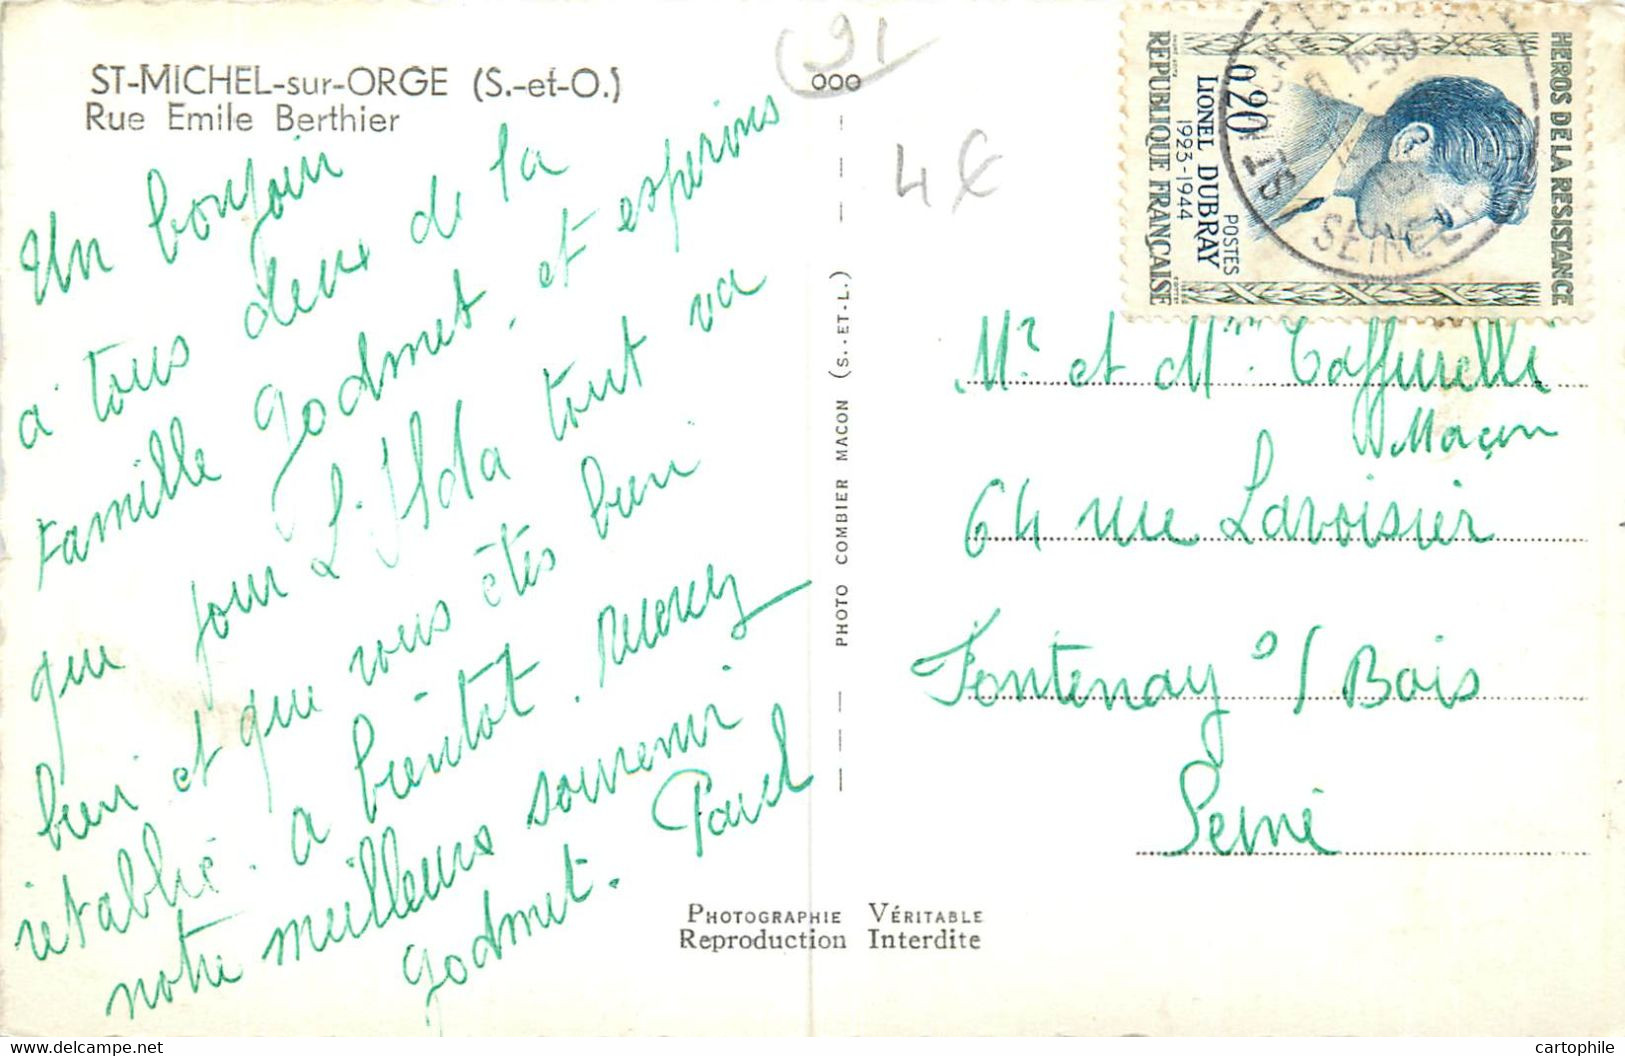 ST-MICHEL-sur-ORGE (S.-et-O.)
Rue Emile Berthier
Un bonjour
a tous deux de la
Famille Godmet. et esperons
que pour L'Ilda tout va
bien et que vous êtes bien
retablie. a bientot.
notre meilleurs souvenir
Godmet. Paul
PHOTO COMBIER MACON (S.-ET-L.)
PHOTOGRAPHIE VÉRITABLE
Reproduction Interdite
91
000
4€
HEROS DE LA RESISTANCE
0,20
LIONEL DUBRAY
1923-1944
POSTES
REPUBLIQUE FRANÇAISE
ST MICHEL S
SEINE ET
Mr et Mme Toffurelli
Maçon
64 rue Lavoisier
Fontenay s/ Bois
Seine
cartophile